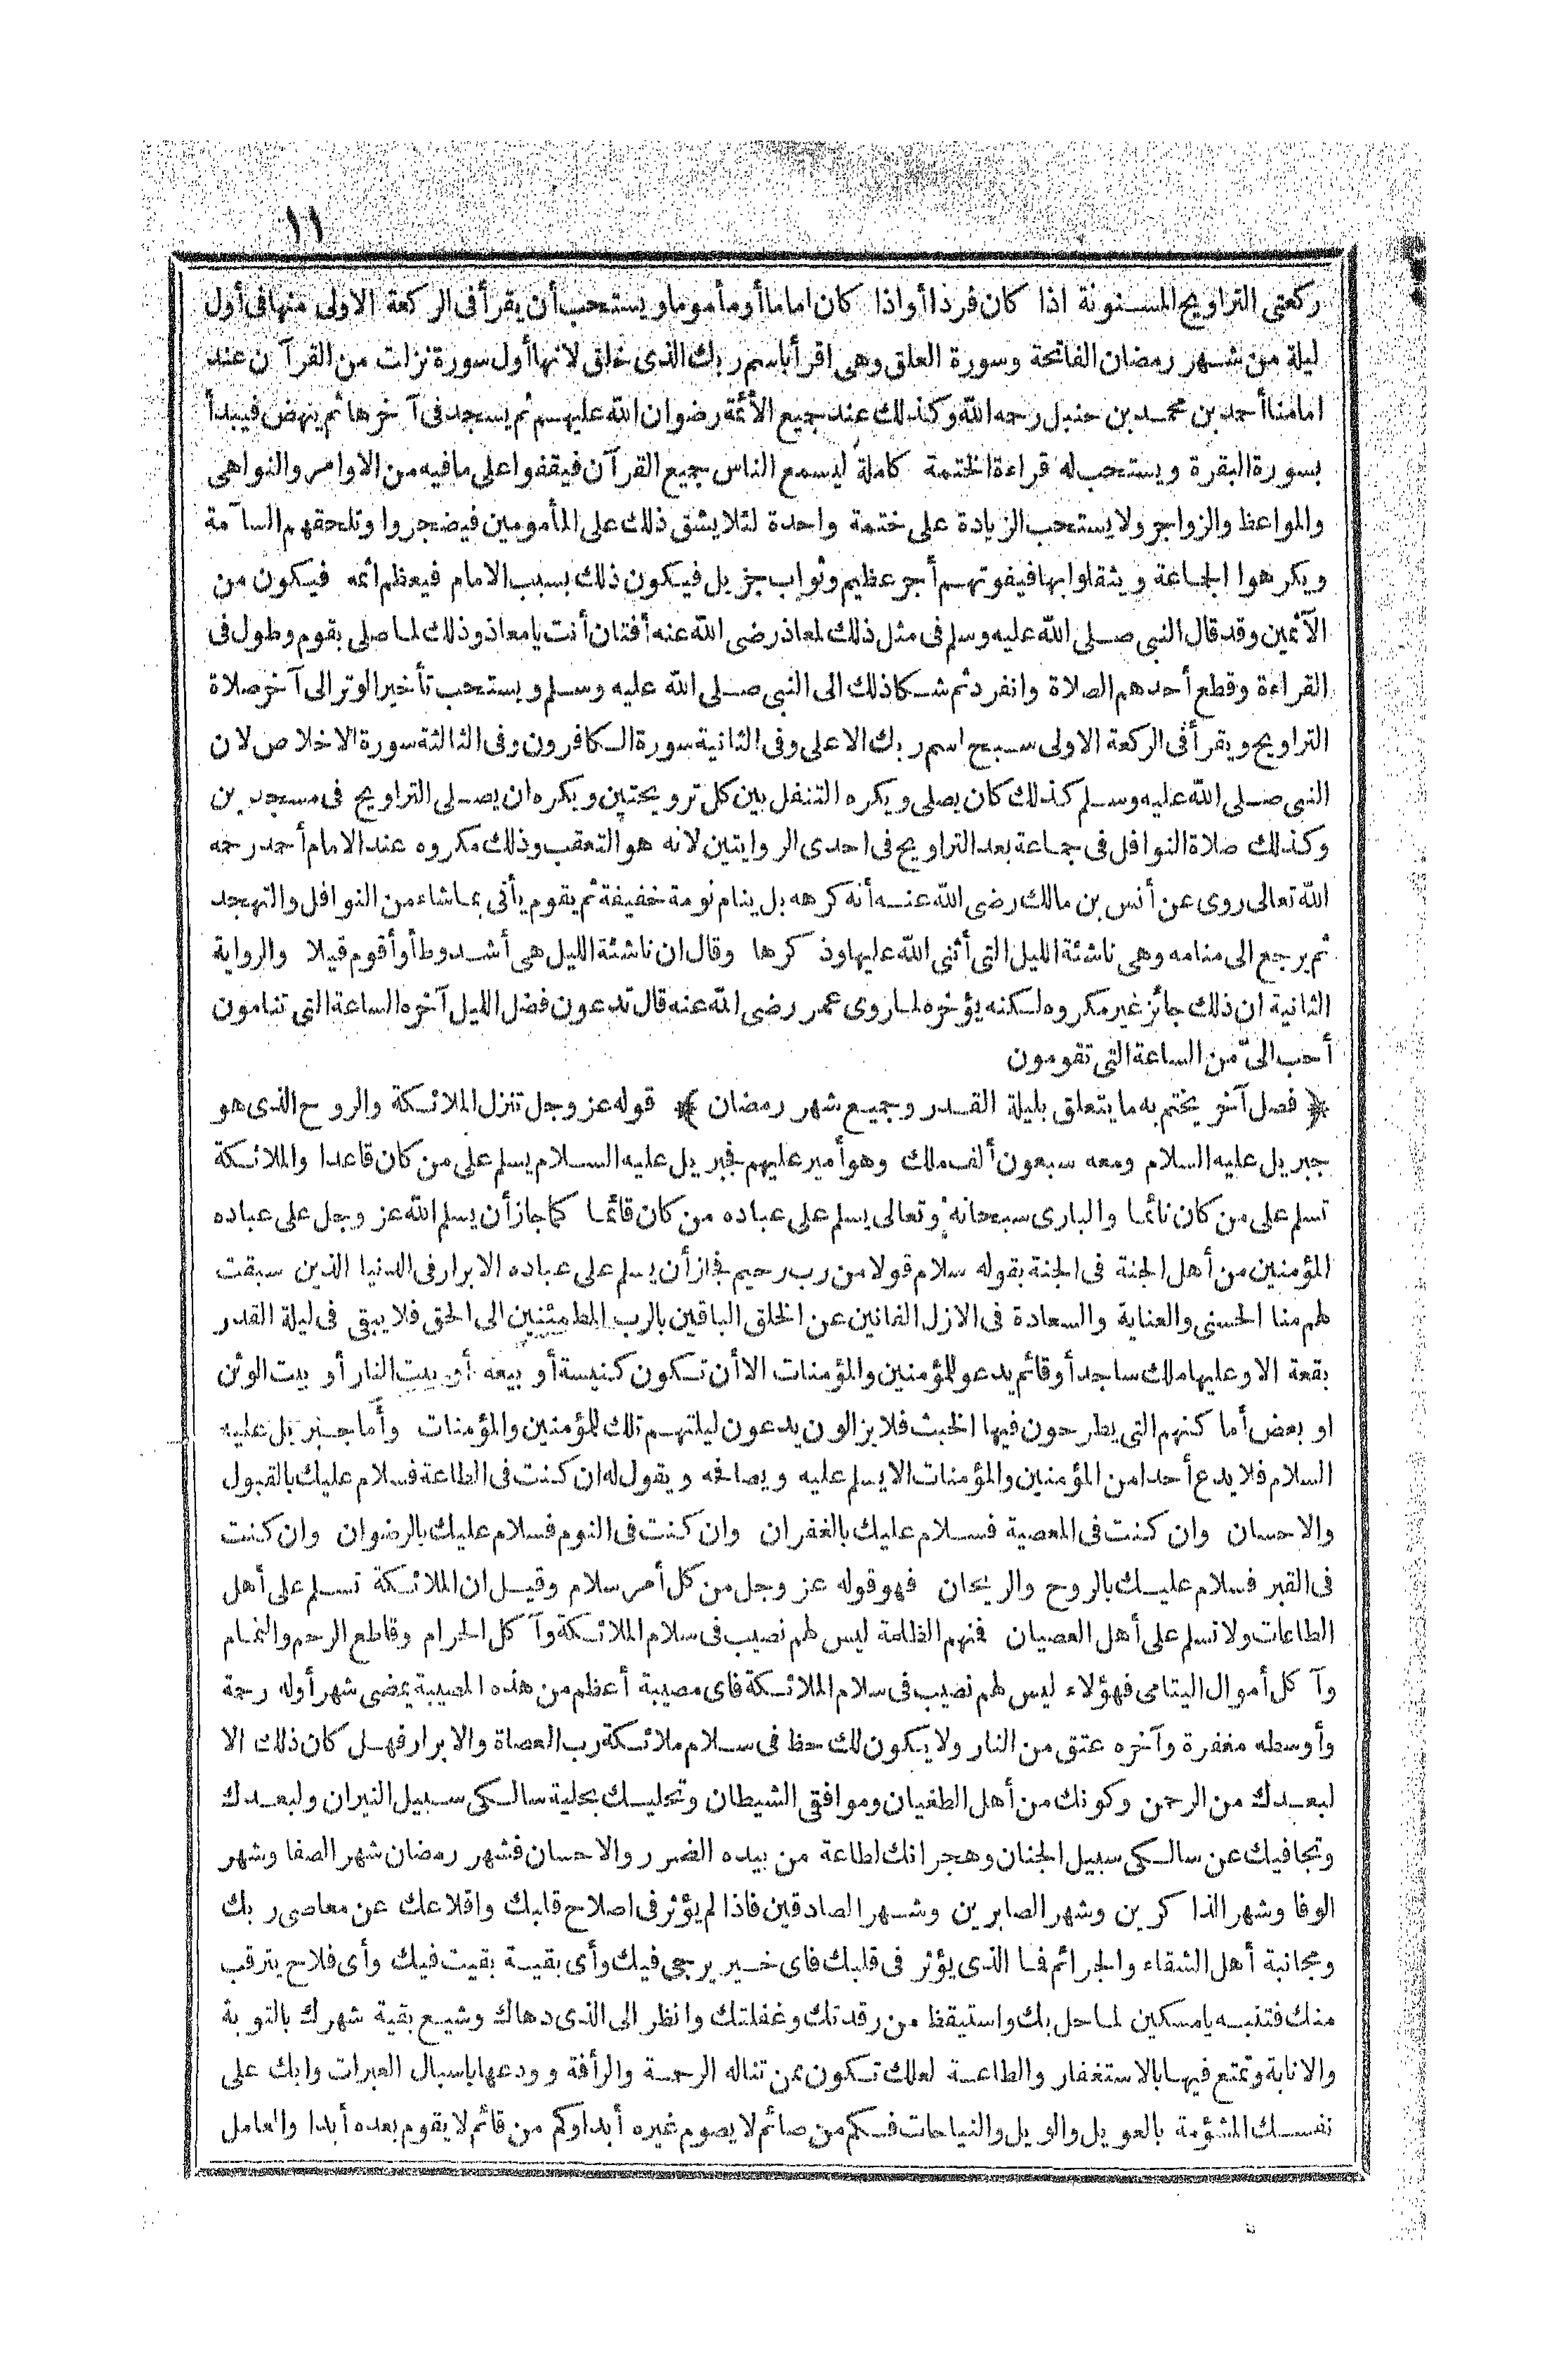 ١١
ركعتى التراويح المسنونة اذا كان فردا أو اذا كان اماما أو مأموما ويستحب أن يقرأ فى الركعة الاولى منها فى أول
ليلة من شهر رمضان الفاتحة وسورة العلق وهى اقرأ باسم ربك الذى خلق لانها أول سورة نزلت من القرآن عند
امامنا أحمد بن محمد بن حنبل رحمه الله وكذلك عند جميع الأئمة رضوان الله عليهم ثم يسجد فى آخرها ثم ينهض فيبدأ
بسورة البقرة ويستحب له قراءة الختمة كاملة ليسمع الناس جميع القرآن فيقفوا على ما فيه من الاوامر والنواهى
والمواعظ والزواجر ولا يستحب الزيادة على ختمة واحدة لئلا يشق ذلك على المأمومين فيضجروا وتلحقهم السآمة
ويكرهوا الجماعة ويثقلوا بها فيفوتهم أجر عظيم وثواب جزيل فيكون ذلك بسبب الامام فيعظم اثمه فيكون من
الآثمين وقد قال النبى صلى الله عليه وسلم فى مثل ذلك لمعاذ رضى الله عنه أفتان أنت يا معاذ وذلك لما صلى بقوم وطول فى
القراءة وقطع أحدهم الصلاة وانفرد ثم شكا ذلك الى النبى صلى الله عليه وسلم ويستحب تأخير الوتر الى آخر صلاة
التراويح ويقرأ فى الركعة الاولى سبح اسم ربك الاعلى وفى الثانية سورة الكافرون وفى الثالثة سورة الاخلاص لان
النبى صلى الله عليه وسلم كذلك كان يصلى ويكره التنفل بين كل ترويحتين ويكره ان يصلى التراويح فى مسجدين
وكذلك صلاة النوافل فى جماعة بعد التراويح فى احدى الروايتين لانه هو التعقب وذلك مكروه عند الامام أحمد رحمه
الله تعالى روى عن أنس بن مالك رضى الله عنه أنه كرهه بل ينام نومة خفيفة ثم يقوم يأتى بما شاء من النوافل والتهجد
ثم يرجع الى منامه وهى ناشئة الليل التى أثنى الله عليها وذكرها وقال ان ناشئة الليل هى أشد وطأ وأقوم قيلا والرواية
الثانية ان ذلك جائز غير مكروه لكنه يؤخره لما روى عمر رضى الله عنه قال تدعون فضل الليل آخره الساعة التى تنامون
أحب الىّ من الساعة التى تقومون
﴿ فصل آخر يختم به ما يتعلق بليلة القدر وجميع شهر رمضان ﴾ قوله عز وجل تنزل الملائكة والروح الذى هو
جبريل عليه السلام ومعه سبعون ألف ملك وهو أمير عليهم فجبريل عليه السلام يسلم على من كان قاعدا والملائكة
تسلم على من كان نائما والبارى سبحانه وتعالى يسلم على عباده من كان قائما كما جاز أن يسلم الله عز وجل على عباده
المؤمنين من أهل الجنة فى الجنة بقوله سلام قولا من رب رحيم فجاز أن يسلم على عباده الابرار فى الدنيا الذين سبقت
لهم منا الحسنى والعناية والسعادة فى الازل الفانين عن الخلق الباقين بالرب المطمئنين الى الحق فلا يبقى فى ليلة القدر
بقعة الا وعليها ملك ساجد أو قائم يدعو للمؤمنين والمؤمنات الا أن تكون كنيسة أو بيعه أو بيت النار أو بيت الوثن
او بعض أماكنهم التى يطرحون فيها الخبث فلا يزالون يدعون ليلتهم تلك للمؤمنين والمؤمنات وأما جبريل عليه
السلام فلا يدع أحدا من المؤمنين والمؤمنات الا يسلم عليه ويصافحه ويقول له ان كنت فى الطاعة فسلام عليك بالقبول
والاحسان وان كنت فى المعصية فسلام عليك بالغفران وان كنت فى النوم فسلام عليك بالرضوان وان كنت
فى القبر فسلام عليك بالروح والريحان فهو قوله عز وجل من كل أمر سلام وقيل ان الملائكة تسلم على أهل
الطاعات ولا تسلم على أهل العصيان فمنهم الظلمة ليس لهم نصيب فى سلام الملائكة وآكل الحرام وقاطع الرحم والنمام
وآكل أموال اليتامى فهؤلاء ليس لهم نصيب فى سلام الملائكة فاى مصيبة أعظم من هذه المصيبة يمضى شهر أوله رحمة
وأوسطه مغفرة وآخره عتق من النار ولا يكون لك حظ فى سلام ملائكة رب العصاة والابرار فهل كان ذلك الا
لبعدك من الرحمن وكونك من أهل الطغيان وموافقى الشيطان وتحليك بحلية سالكى سبيل النيران ولبعدك
وتجافيك عن سالكى سبيل الجنان وهجرانك لطاعة من بيده الضرر والاحسان فشهر رمضان شهر الصفا وشهر
الوفا وشهر الذاكرين وشهر الصابرين وشهر الصادقين فاذا لم يؤثر فى اصلاح قلبك واقلاعك عن معاصى ربك
ومجانبة أهل الشقاء والجرائم فما الذى يؤثر فى قلبك فاى خير يرجى فيك وأى بقية بقيت فيك وأى فلاح يترقب
منك فتنبه يا مسكين لما حل بك واستيقظ من رقدتك وغفلتك وانظر الى الذى دهاك وشيع بقية شهرك بالتوبة
والانابة وتمتع فيها بالاستغفار والطاعة لعلك تكون ممن تناله الرحمة والرأفة وودعها باسبال العبرات وابك على
نفسك المشؤمة بالعويل والويل والنياحات فكم من صائم لا يصوم غيره أبدا وكم من قائم لا يقوم بعده أبدا والعامل